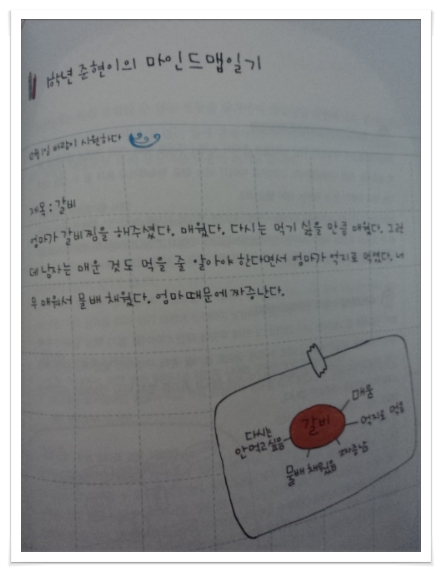 1학년 준현이의 마인드맵일기
바람이 시원하다
제목 : 갈비
엄마가 갈비찜을 해주셨다. 매웠다. 다시는 먹기 싫을 만큼 매웠다. 그런
데 남자는 매운 것도 먹을 줄 알아야 한다면서 엄마가 억지로 먹였다. 너
무 매워서 물배 채웠다. 엄마 때문에 짜증난다.
매움
갈비
억지로 먹음
다시는
안먹고싶음
짜증남
물배 채웠음